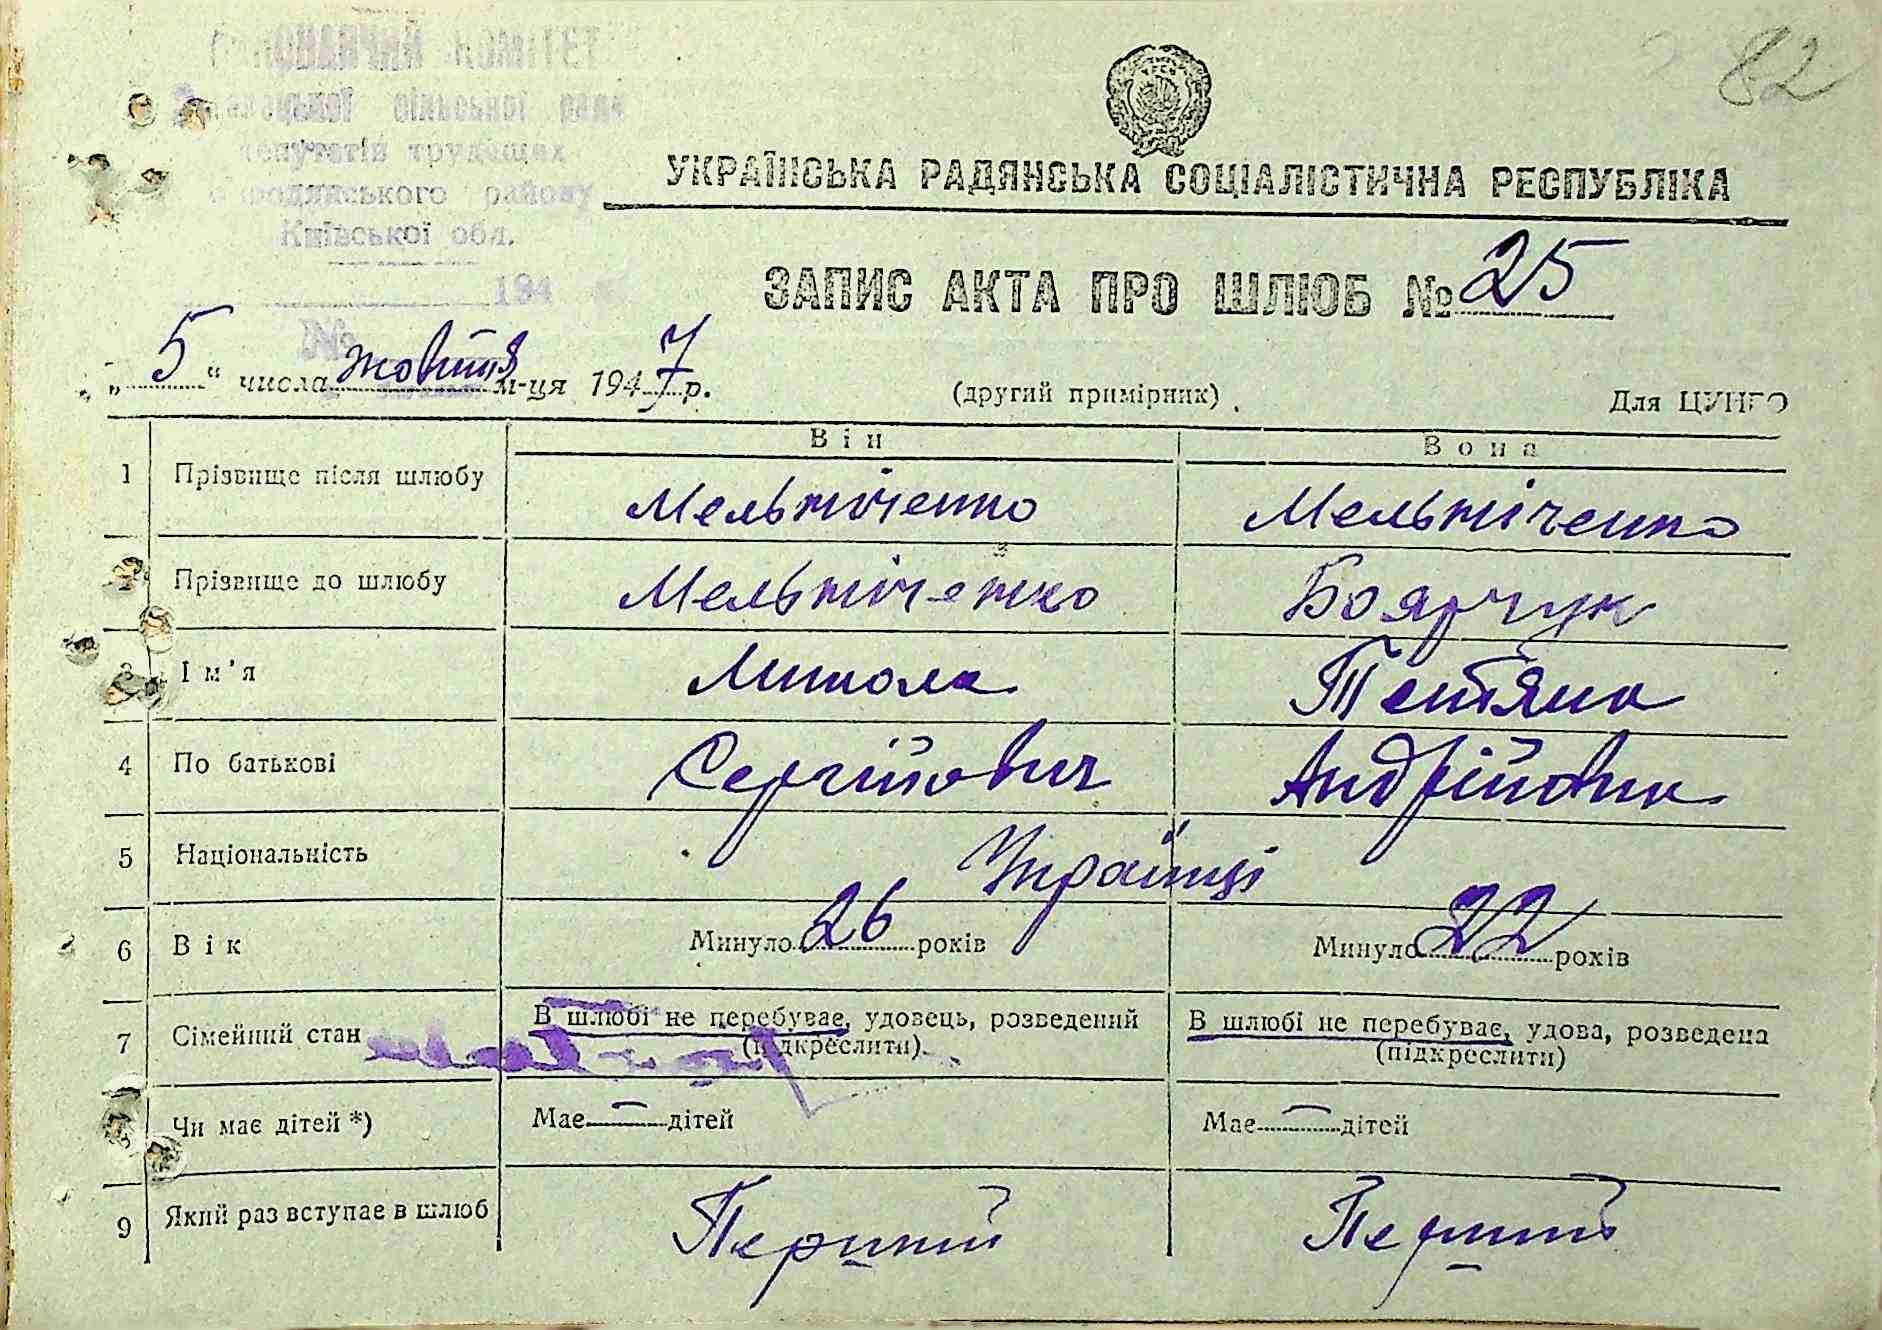 82
КОМІТЕТ
сільської ради
депутатів трудящих
Бородянського району
Київської обл.
194
№
УКРАЇНСЬКА РАДЯНСЬКА СОЦІАЛІСТИЧНА РЕСПУБЛІКА
ЗАПИС АКТА ПРО ШЛЮБ № 25
„5“ числа жовтня м-ця 1947 р. (другий примірник) Для ЦУНГО
Він Вона
1 Прізвище після шлюбу Мельніченко Мельніченко
2 Прізвище до шлюбу Мельніченко Боярчук
3 Ім'я Микола Тетяна
4 По батькові Сергійович Андрійовна
5 Національність Українці
6 Вік Минуло 26 років Минуло 22 років
7 Сімейний стан В шлюбі не перебуває, удовець, розведений (підкреслити) В шлюбі не перебуває, удова, розведена (підкреслити)
8 Чи має дітей *) Має — дітей Має — дітей
9 Який раз вступає в шлюб Перший Перший